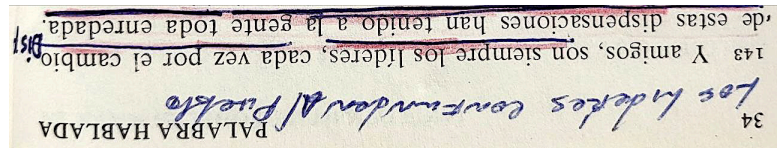 34 PALABRA HABLADA
Los lideres confunden al Pueblo
143 Y amigos, son siempre los líderes, cada vez por el cambio
DISP/
de estas dispensaciones han tenido a la gente toda enredada.